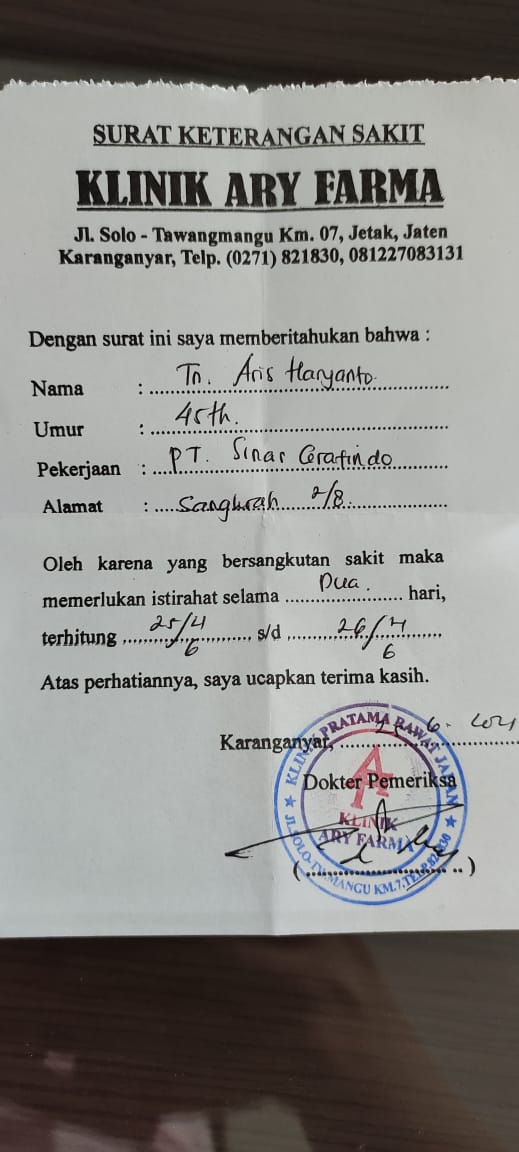 SURAT KETERANGAN SAKIT
KLINIK ARY FARMA
Jl. Solo - Tawangmangu Km. 07, Jetak, Jaten
Karanganyar, Telp. (0271) 821830, 081227083131
Dengan surat ini saya memberitahukan bahwa :
Nama : Tn. Aris Haryanto
Umur : 45th.
Pekerjaan : PT. Sinar Grafindo
Alamat : Sangkrah 2/8
Oleh karena yang bersangkutan sakit maka
memerlukan istirahat selama Dua hari,
terhitung 25/6 s/d 26/6
Atas perhatiannya, saya ucapkan terima kasih.
Karanganyar, 6. 2021
Dokter Pemeriksa
KLINIK PRATAMA RAWAT JALAN
KLINIK
ARY FARMA
JL. SOLO-TW.MANGU KM.7,TELP.821830